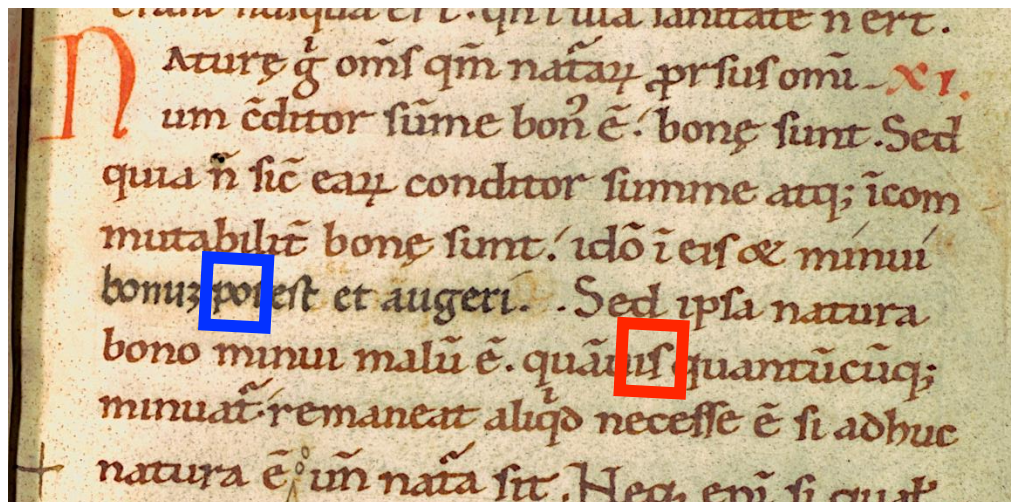 Naturę g̊ om̄s qm̄ nat̄aꝝ ꝓrsus omī- XI.
um c̄ditor sūme bonꝰ ē. bonę sunt. Sed
quia n̄ sic̄ eaꝝ conditor summe atq; īcom
mutabilit̄ bonę sunt. idō ī eis & minui
bonuꝫ potest et augeri. . Sed ipsa natura
bono minui malū ē. quāuis quantūcūq;
minuat̄ remaneat aliqd necesse ē si adhuc
natura ē un̄ nat̄a sit. Neq;